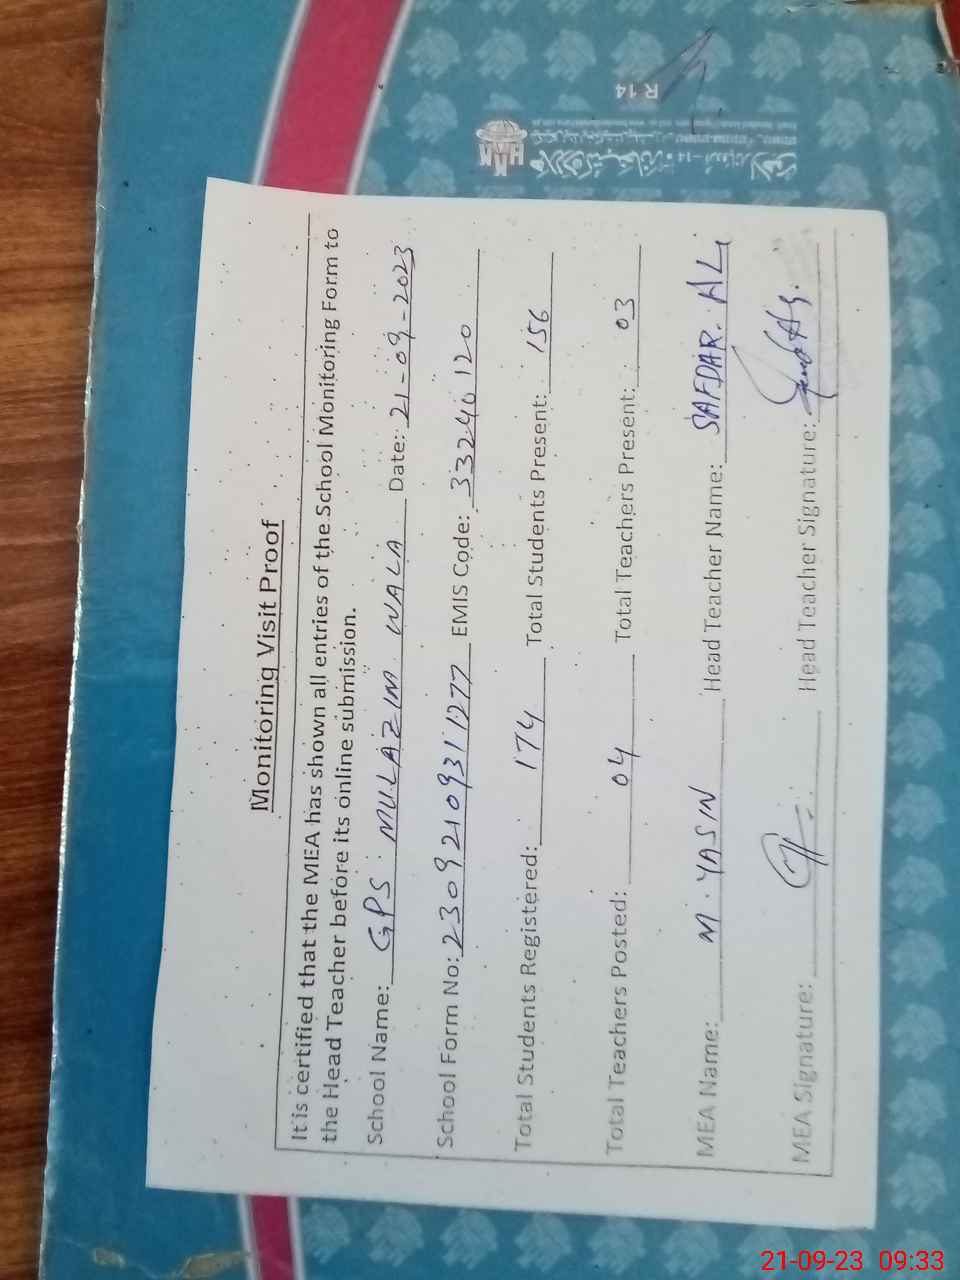 Monitoring Visit Proof
It is certified that the MEA has shown all entries of the School Monitoring Form to
the Head Teacher before its online submission.
School Name: GPS MULAZIM WALA Date: 21-09-2023
School Form No: 230921093111277 EMIS Code: 33240120
Total Students Registered: 174 Total Students Present: 156
Total Teachers Posted: 04 Total Teachers Present: 03
MEA Name: M. YASIN Head Teacher Name: SAFDAR. ALi
MEA Signature: Head Teacher Signature:
HAK
R 14
21-09-23 09:33